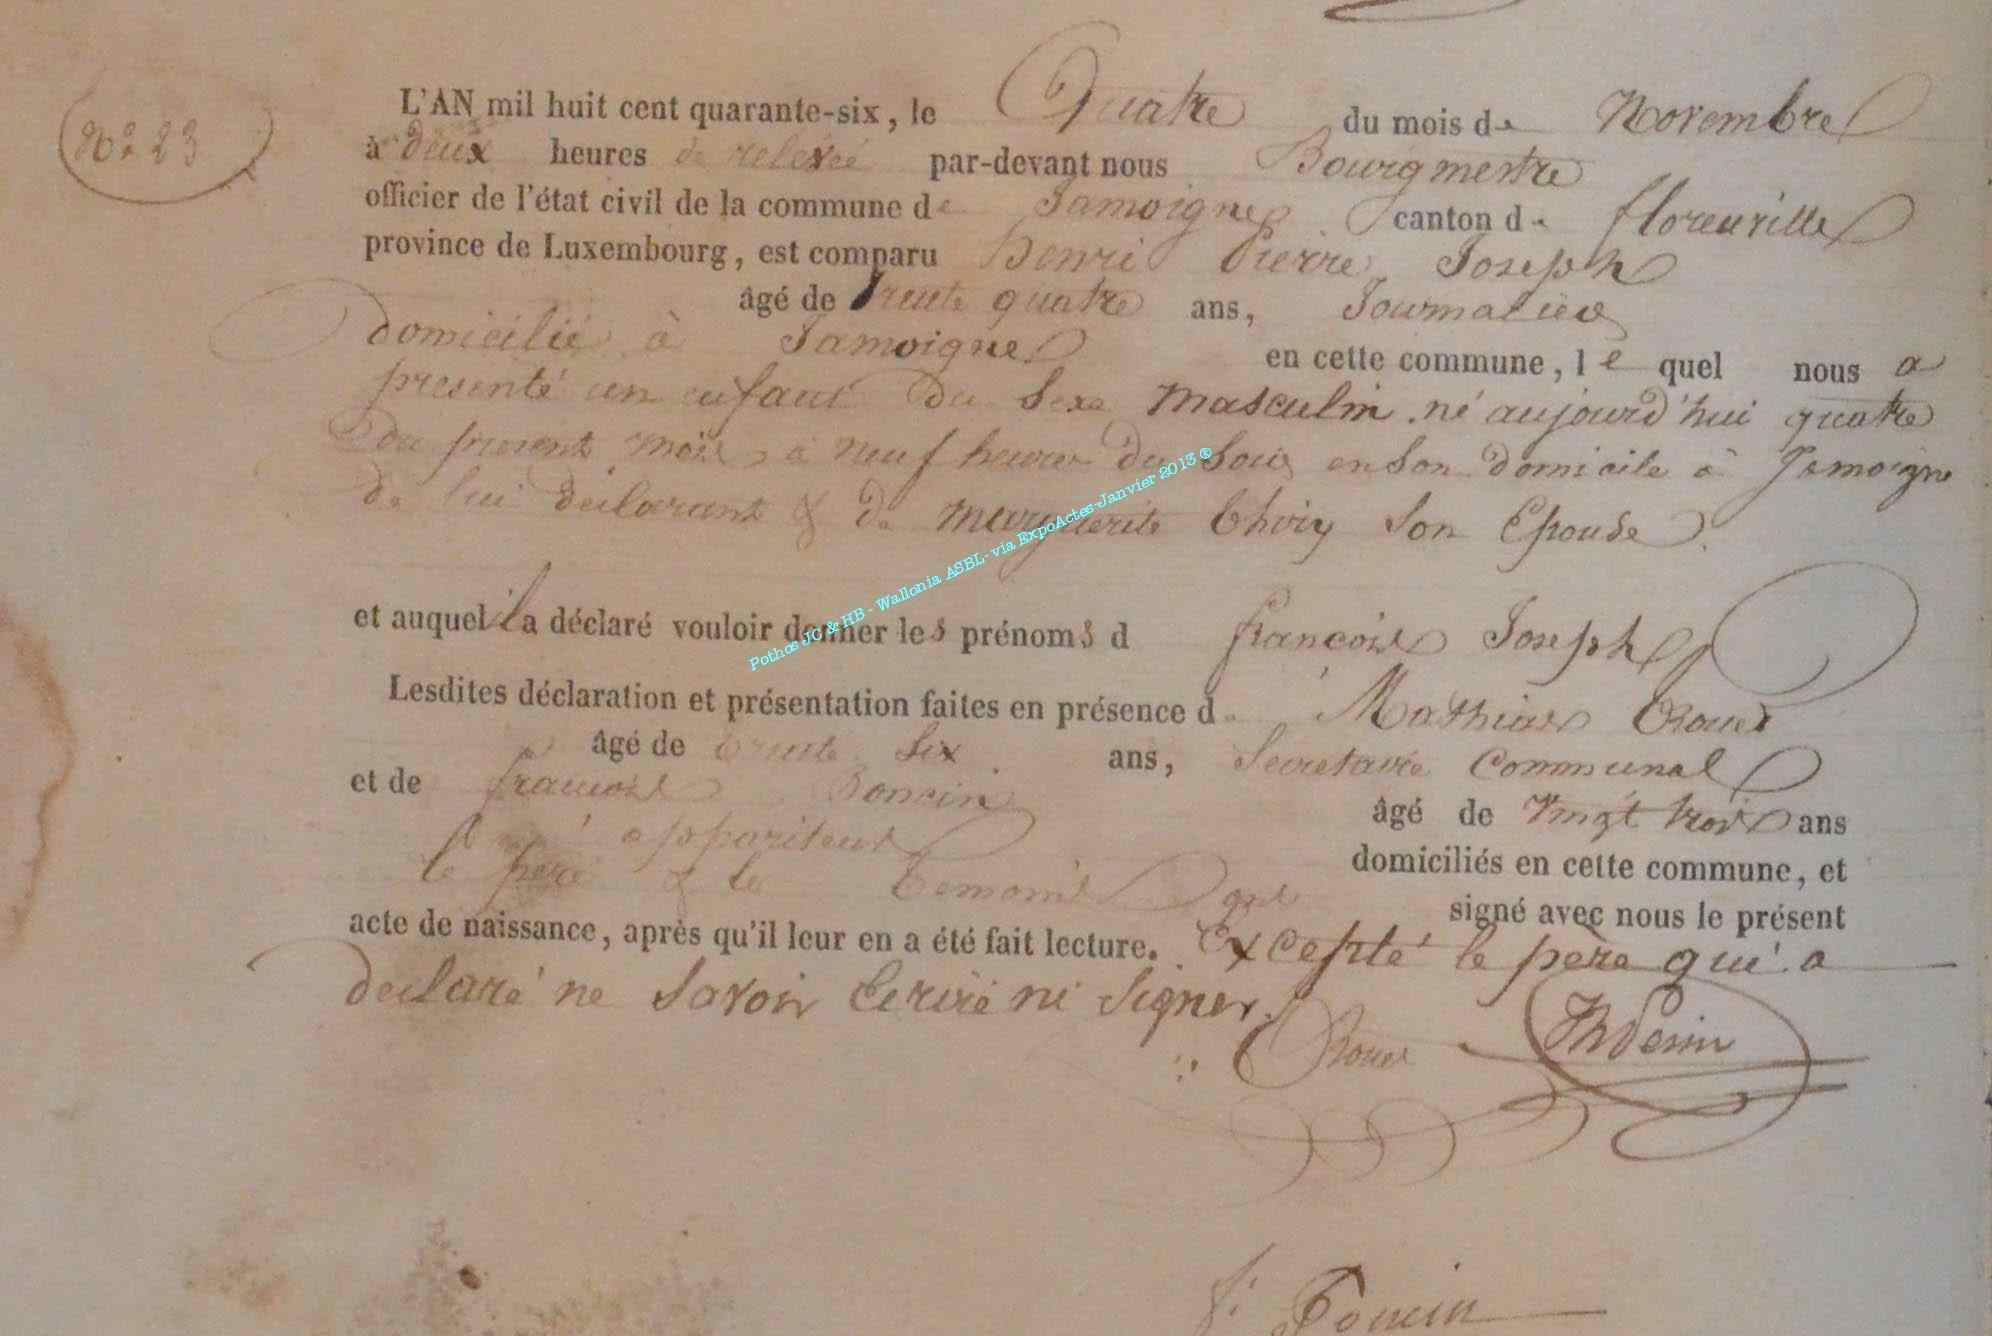 N° 23
L'AN mil huit cent quarante-six, le Quatre du mois de Novembre
à deux heures de relevée par-devant nous Bourgmestre
officier de l'état civil de la commune de Jamoigne canton de florenville
province de Luxembourg, est comparu henri Pierre Joseph
âgé de trente quatre ans, Journalier
domicilié à Jamoigne en cette commune, lequel nous a
presenté un enfant du Sexe masculin né aujourd'hui quatre
du present mois, a neuf heures du Soir en Son domicile à Jamoigne
de lui declarant & de marguerite thiry Son Epouse
et auquel il a déclaré vouloir donner les prénoms d françois Joseph
Lesdites déclaration et présentation faites en présence de Mathias
âgé de trente Six ans, Secretaire Communal
et de françois Poncin âgé de vingt trois ans
appariteur domiciliés en cette commune, et
le pere & les temoins ont signé avec nous le présent
acte de naissance, après qu'il leur en a été fait lecture. Excepté le père qui a
declaré ne Savoir Ecrire ni Signer.
f. Poncin
Pothos JC & HB - Wallonia ASBL- via ExpoActes-Janvier 2013 ®